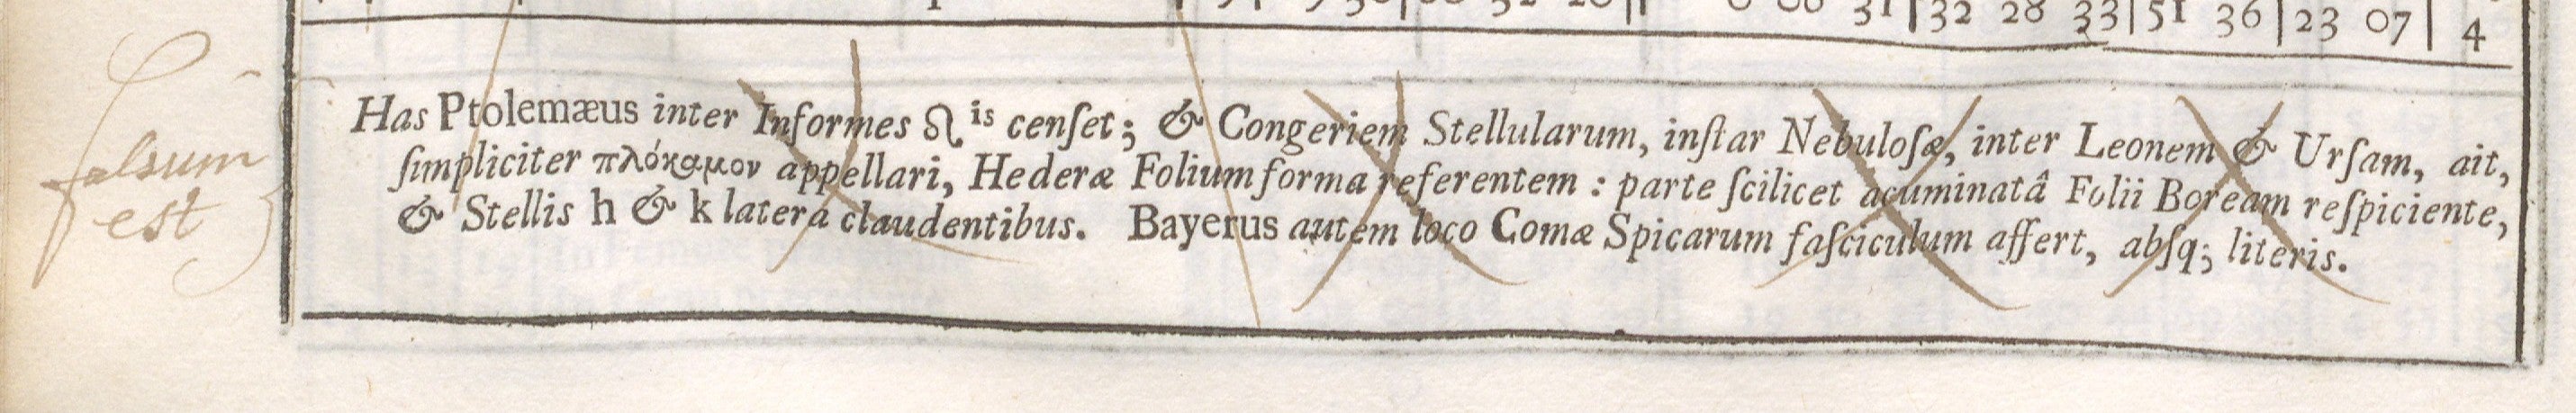 31|32 28 33|51 36|23 07| 4
Has Ptolemæus inter Informes ♌ is cenſet; & Congeriem Stellularum, inſtar Nebuloſæ, inter Leonem & Urſam, ait,
ſimpliciter πλόκαμον appellari, Hederæ Folium forma referentem: parte ſcilicet acuminatâ Folii Boream reſpiciente,
& Stellis h & k latera claudentibus. Bayerus autem loco Comæ Spicarum faſciculum affert, abſq; literis.
falsum
est